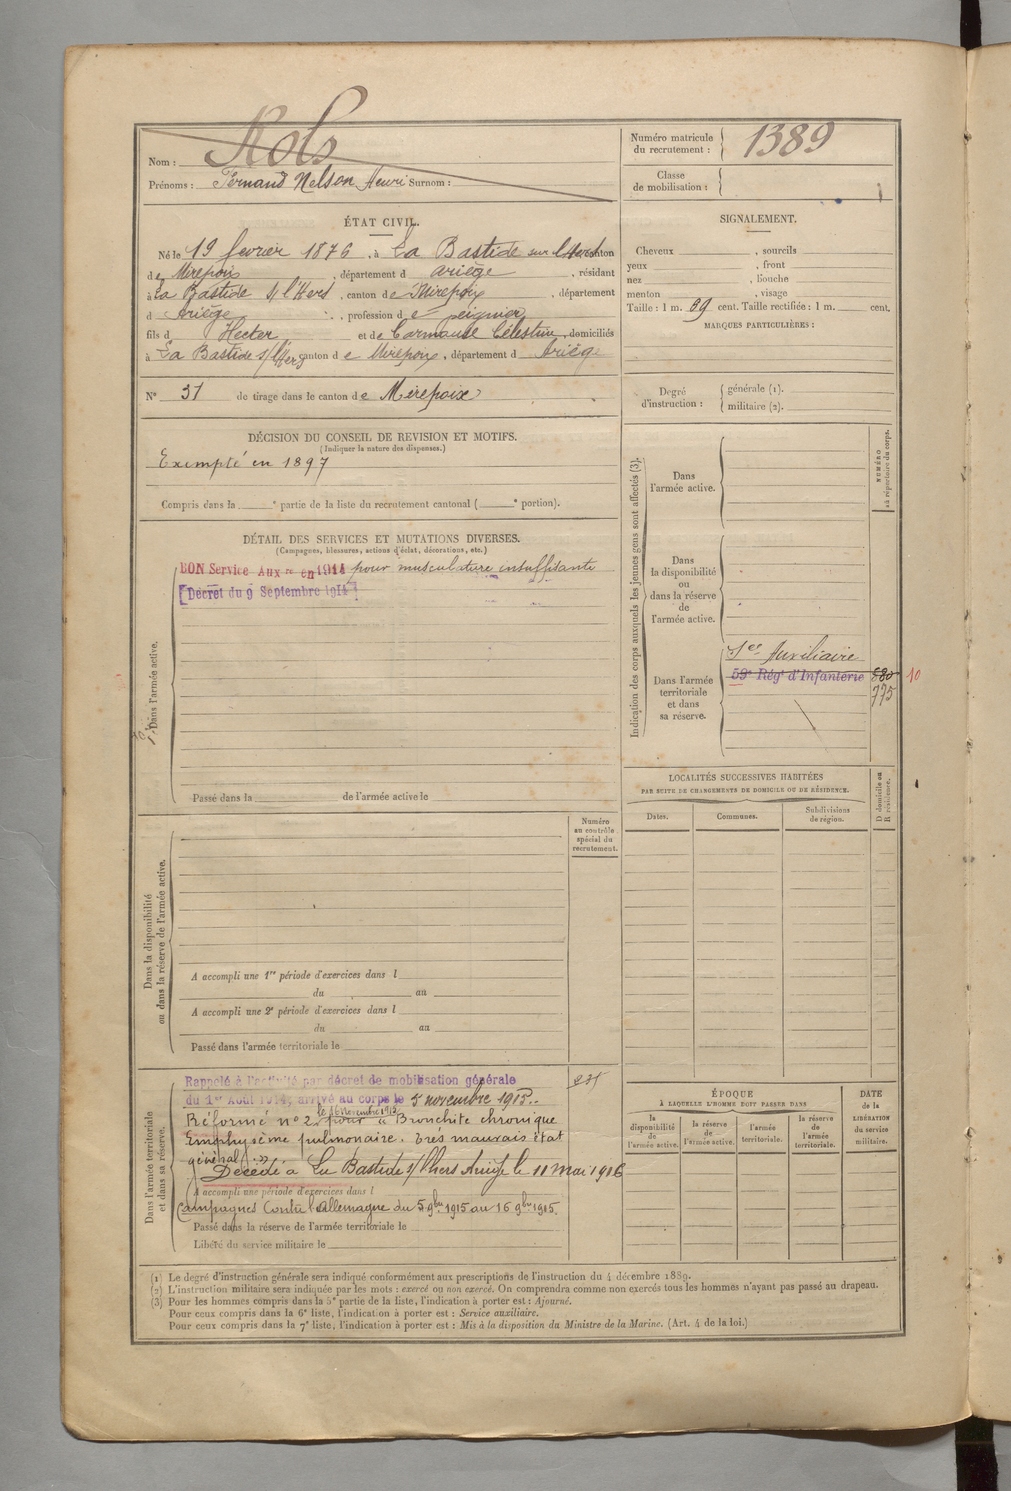 Nom : Nols
Prénoms : Fernand Nelson Henri Surnom :
Numéro matricule
du recrutement : 1389
Classe
de mobilisation :
ÉTAT CIVIL.
Né le 19 fevrier 1876, à La Bastide sur l'Hers canton
de Mirepoix, département d ariège, résidant
à La Bastide s/ l'Hers, canton de Mirepoix, département
d Ariège, profession de peignier
fils d Hector et de Carmause Célestine, domiciliés
à La Bastide s/ l'Hers canton de Mirepoix, département d Ariège
N° 31 de tirage dans le canton de Mirepoix
SIGNALEMENT.
Cheveux , sourcils
yeux , front
nez , bouche
menton , visage
Taille : 1 m. 59 cent. Taille rectifiée : 1 m. cent.
MARQUES PARTICULIÈRES :
Degré
d'instruction :
générale (1).
militaire (2).
DÉCISION DU CONSEIL DE REVISION ET MOTIFS.
(Indiquer la nature des dispenses.)
Exempté en 1897
Compris dans la e partie de la liste du recrutement cantonal ( e portion).
DÉTAIL DES SERVICES ET MUTATIONS DIVERSES.
(Campagnes, blessures, actions d'éclat, décorations, etc.)
BON Service Aux re en 1914 pour musculature insuffisante
[Décret du 9 Septembre 1914]
Dans l'armée active.
Passé dans la de l'armée active le
Indication des corps auxquels les jeunes gens sont affectés (3).
NUMÉRO
au répertoire du corps.
Dans
l'armée active.
Dans
la disponibilité
ou
dans la réserve
de
l'armée active.
Dans l'armée
territoriale
et dans
sa réserve.
Sce Auxiliaire
59e Régt d'Infanterie 880 10
775
LOCALITÉS SUCCESSIVES HABITÉES
PAR SUITE DE CHANGEMENTS DE DOMICILE OU DE RÉSIDENCE.
Dates.
Communes.
Subdivisions
de région.
D domicile ou
R résidence.
Numéro
au contrôle
spécial du
recrutement.
Dans la disponibilité
ou dans la réserve de l'armée active.
A accompli une 1re période d'exercices dans l
du au
A accompli une 2e période d'exercices dans l
du au
Passé dans l'armée territoriale le
Dans l'armée territoriale
et dans sa réserve.
Rappelé à l'activité par décret de mobilisation générale
du 1er Août 1914, arrivé au corps le 5 novembre 1915.
le 16 Novembre 1915
Réformé n° 2 pour « Bronchite chronique
Emphysème pulmonaire. Très mauvais état
général. »
Décédé à La Bastide s/ l'hers Ariège le 11 mai 1916
A accompli une période d'exercices dans l
Campagnes Contre l'Allemagne du 5 9bre 1915 au 16 9bre 1915.
Passé dans la réserve de l'armée territoriale le
Libéré du service militaire le
ÉPOQUE
À LAQUELLE L'HOMME DOIT PASSER DANS
la
disponibilité
de
l'armée active.
la réserve
de
l'armée active.
l'armée
territoriale.
la réserve
de
l'armée
territoriale.
DATE
de la
LIBÉRATION
du service
militaire.
(1) Le degré d'instruction générale sera indiqué conformément aux prescriptions de l'instruction du 4 décembre 1889.
(2) L'instruction militaire sera indiquée par les mots : exercé ou non exercé. On comprendra comme non exercés tous les hommes n'ayant pas passé au drapeau.
(3) Pour les hommes compris dans la 5e partie de la liste, l'indication à porter est : Ajourné.
Pour ceux compris dans la 6e liste, l'indication à porter est : Service auxiliaire.
Pour ceux compris dans la 7e liste, l'indication à porter est : Mis à la disposition du Ministre de la Marine. (Art. 4 de la loi.)